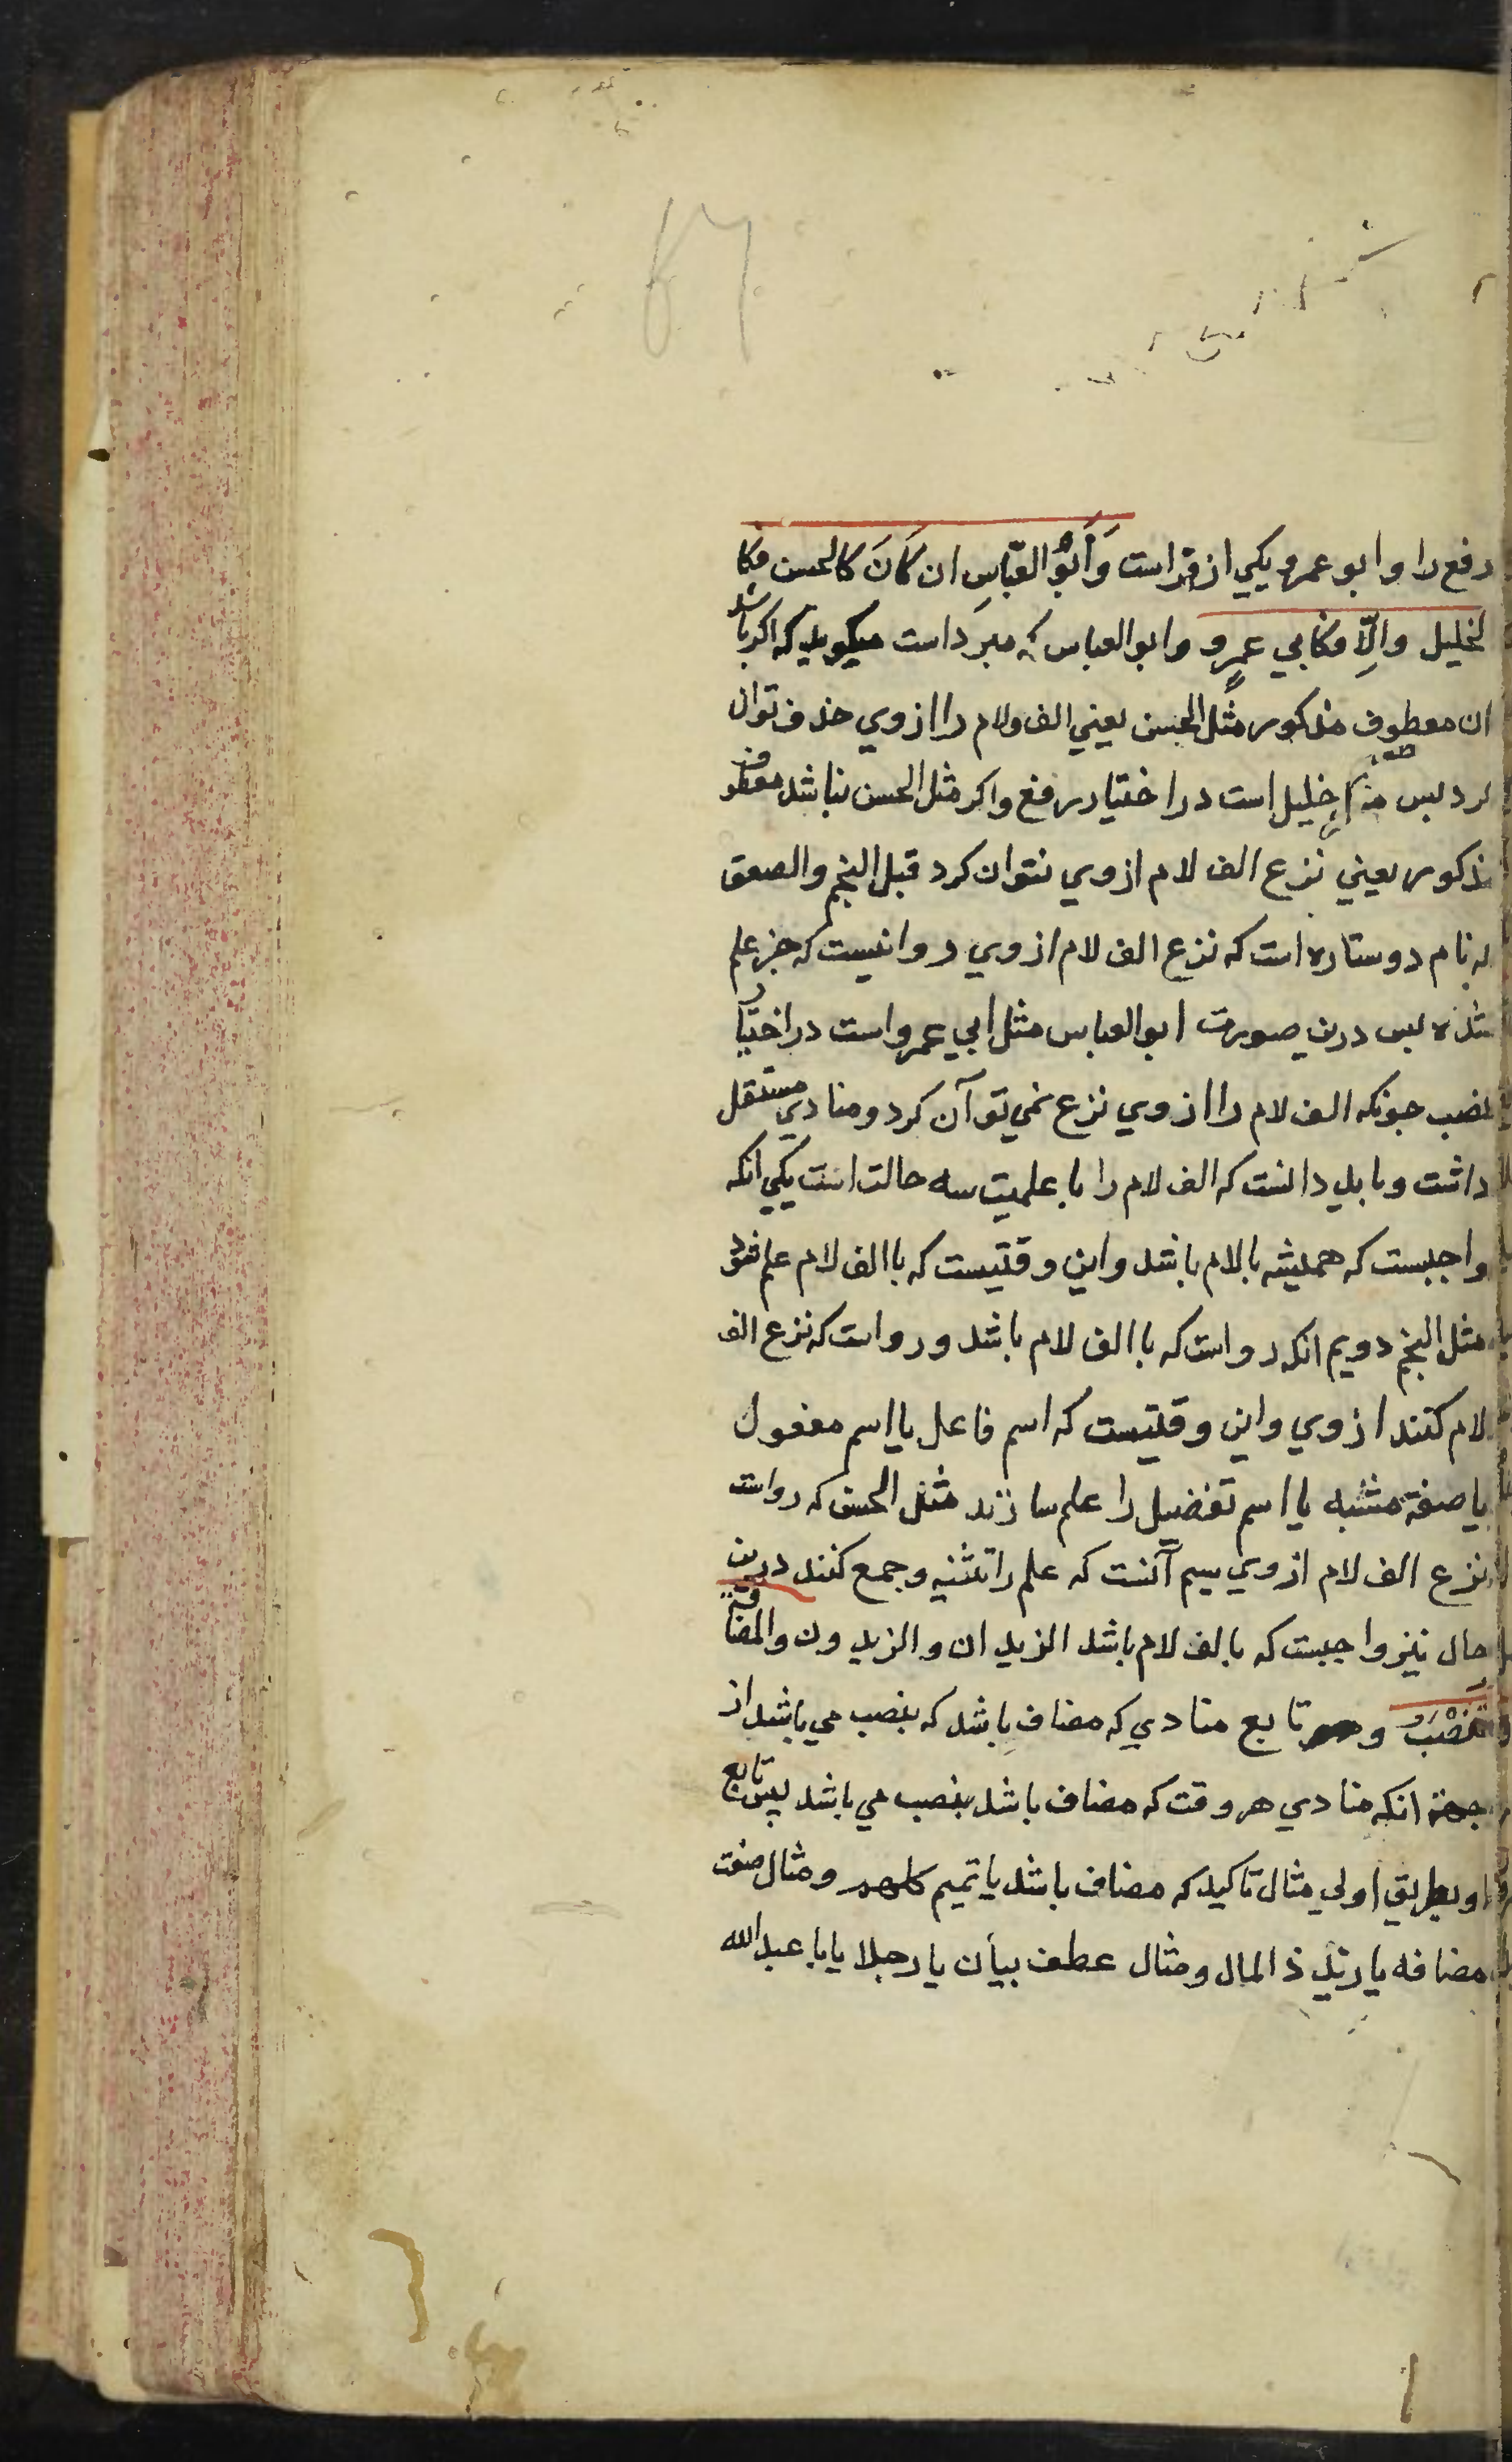 رفع را و ابو عمرو یکي از قراست وَأَبُو العَبّاسِ ان كَانَ كالحسن فكا
لخليل والّا فكابي عمرو و ابو العباس که مبرَد است میکوید که اکر باشد
ان معطوف مذکور مثل الحسن یعني الف ولام را از وي حذف توان
کرد بس خلیل است در اختیار رفع واکر مثل الحسن نباشد معطوف
مذکور یعني نزع الف لام از وي نتوان کرد قبل النجم والصعق
که نام دو ستاره است که نزع الف لام از وي روا نیست که جز علم
شده بس درین صورت ابو العباس مثل ابي عمرو است در اختیار
نصب جونکه الف لام را از وي نزع نمي توآن کرد و منادي مستقل
داشت و باید دانست که الف لام را با علمیت سه حالت است یکي انکه
واجبست که همیشه بالام باشد واین وقتیست که باالف لام علم شود
مثل النجم دویم انکه رواست که باالف لام باشد و رواست که نزع الف
لام کنند از وي واین وقتیست که اسم فاعل یا اسم مفعول
یا صفة مشبه یا اسم تفضیل را علم سازند مثل الحسن که رواست
نزع الف لام از وي سیم آنست که علم را تثنیه وجمع کنند درین
حال نیز واجبست که بالف لام باشد الزیدان و الزیدون والمضافة
تنصب و تابع منادي که مضاف باشد که بنصب مي باشد از
جهة انکه منادي هر وقت که مضاف باشد بنصب مي باشد بس تابع
او بطریق اولي مثال تاکید که مضاف باشد یا تمیم کلهم و مثال صفت
مضافه یا زید ذا المال و مثال عطف بیان یا رجلا یابا عبد الله